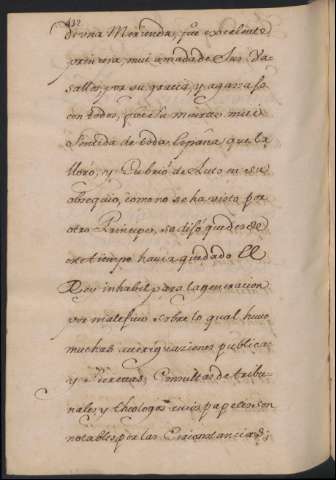 de vna Merienda, fue excelente
princesa, mui amada de sus Va-
sallos, por su gracia, y agasajo
con todos, fue su muerte mui
sentida de toda España, que la
lloró, y Cubrió de Luto en su
obsequio, como no se ha visto por
otro Principe, se dijó que desde
este tiempo havia quedado El
Rey inhabil para la generacion
por maleficio sobre lo qual huvo
muchas averiguaciones publicas
y Secretas, Consultas de tribu-
nales, y theologos cuios papeles son
notables por las Circonstancias;